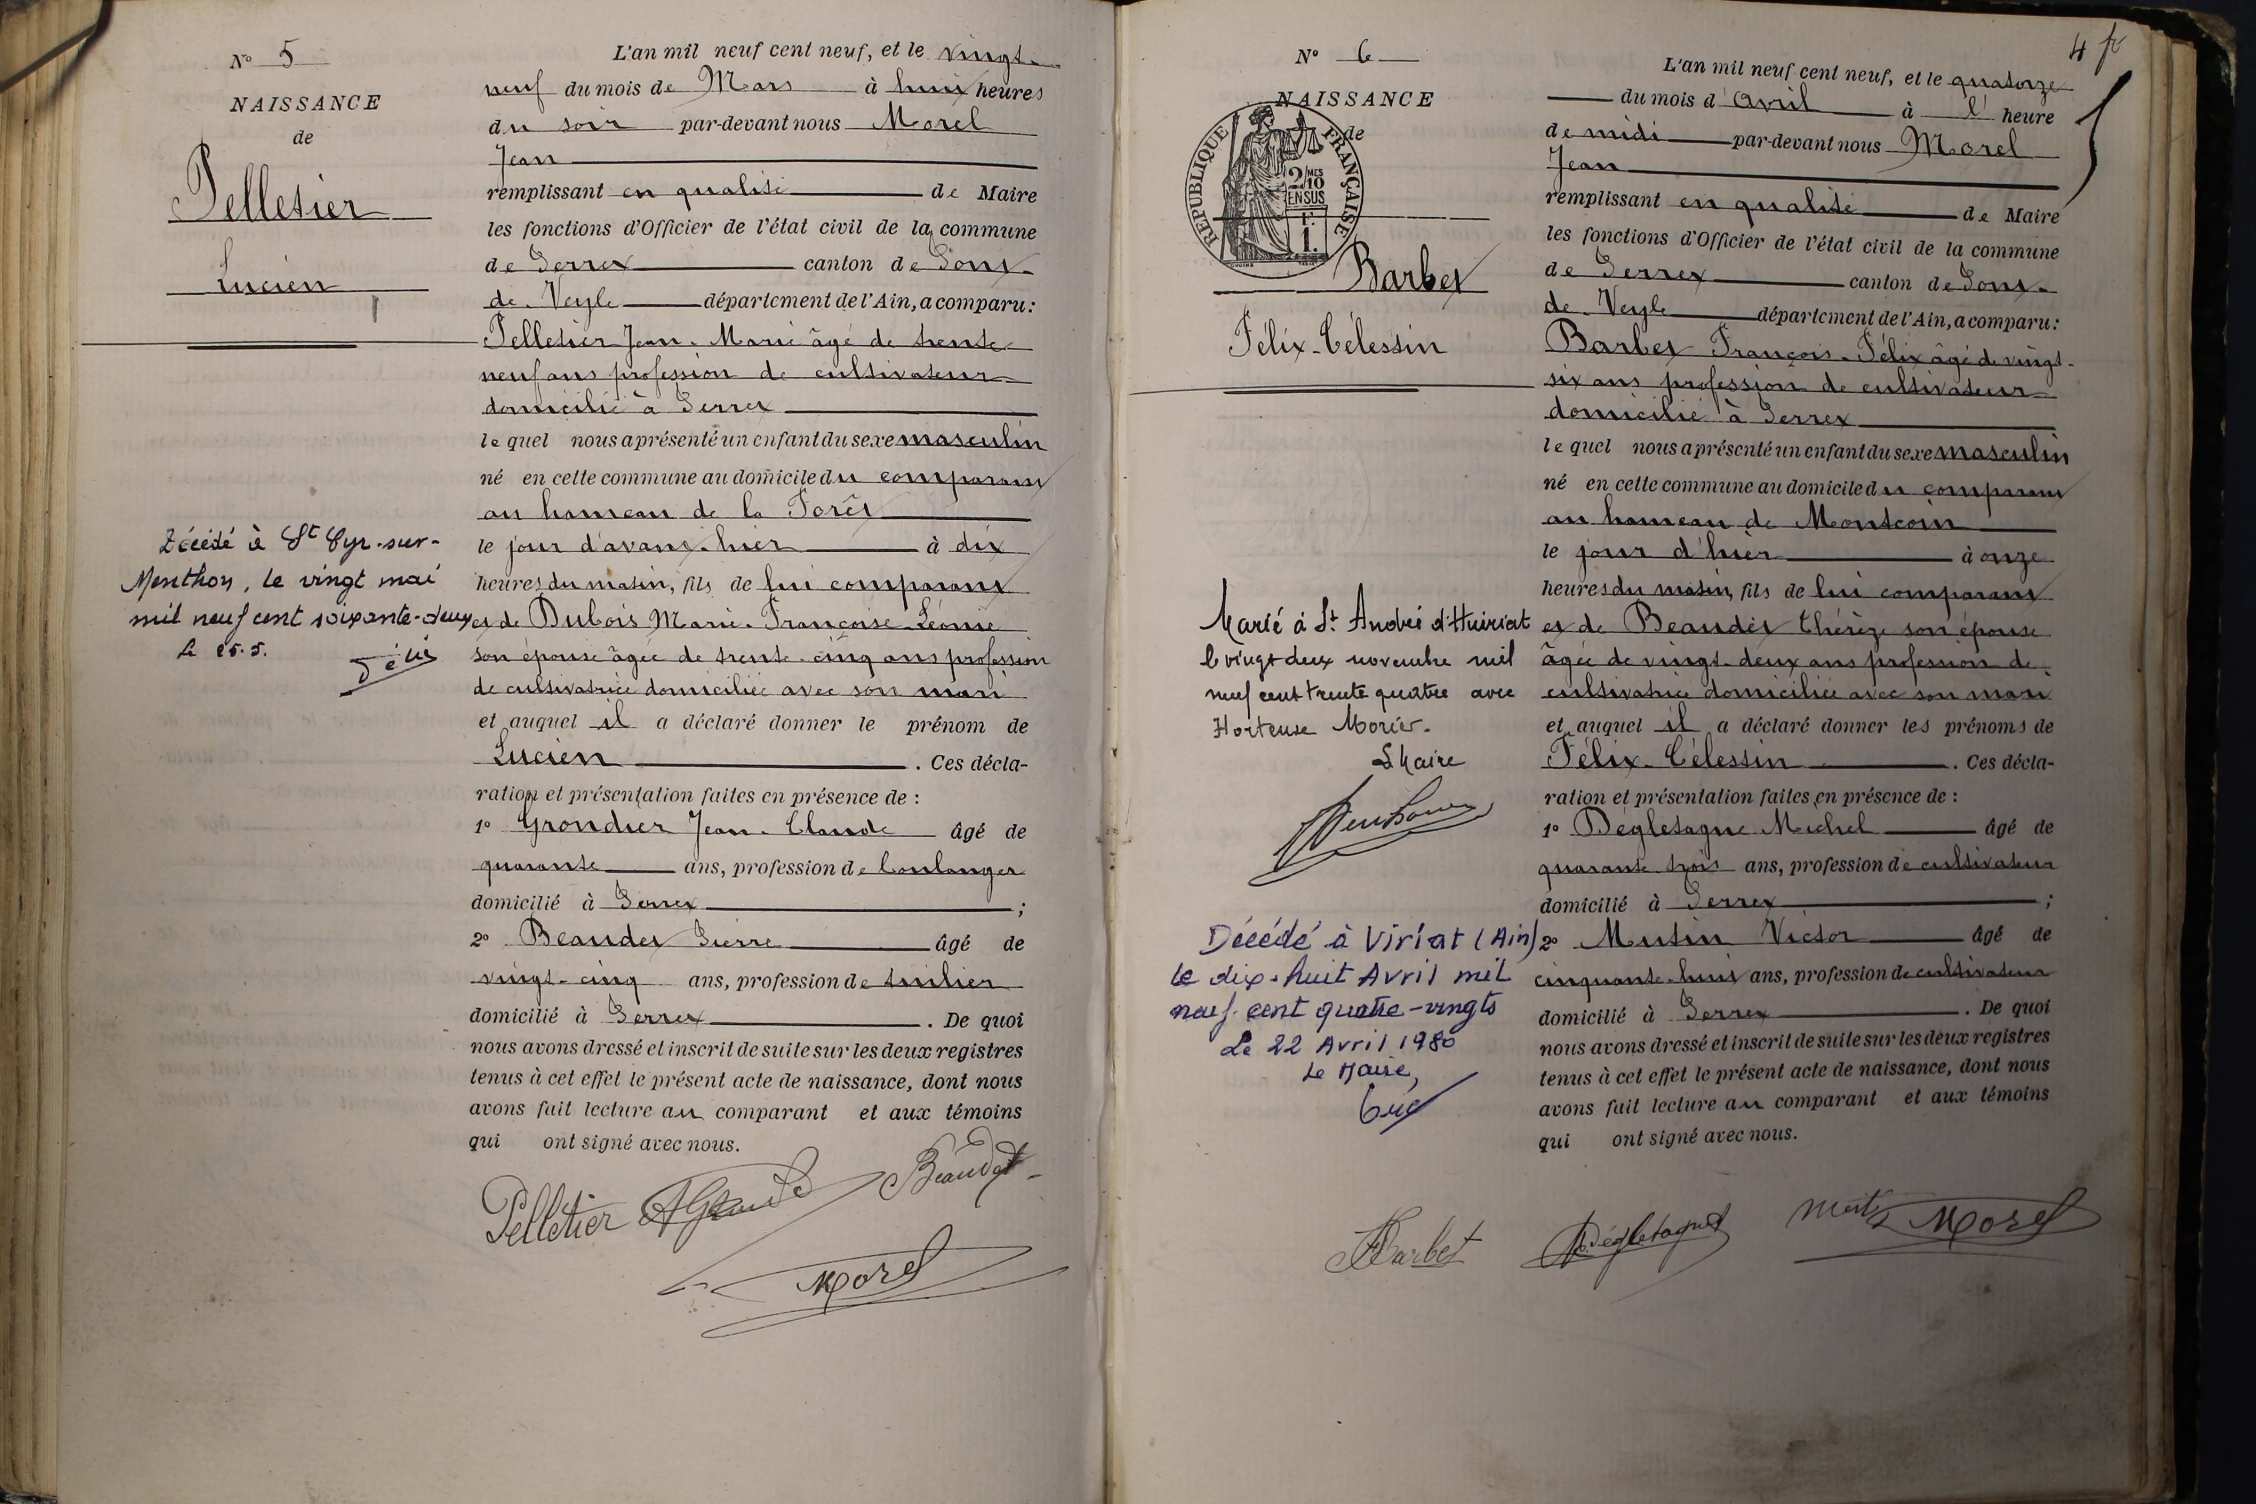 N° 5
NAISSANCE
de
Pelletier
Lucien
Décédé à St Cyr-sur-
Menthon, le vingt mai
mil neuf cent soixante-deux
Le 25.5.
L'an mil neuf cent neuf, et le vingt-
neuf du mois de Mars à huit heures
du soir par-devant nous Morel
Jean
remplissant en qualité de Maire
les fonctions d'Officier de l'état civil de la commune
de Perrex canton de Pont-
de-Veyle département de l'Ain, a comparu:
Pelletier Jean-Marie âgé de trente-
neuf ans profession de cultivateur
domicilié à Perrex
lequel nous a présenté un enfant du sexe masculin
né en cette commune au domicile du comparant
au hameau de la Forêt
le jour d'avant-hier à dix
heures du matin, fils de lui comparant
et de Dubois Marie-Françoise-Léonie
son épouse âgée de trente-cinq ans profession
de cultivatrice domiciliée avec son mari
et auquel il a déclaré donner le prénom de
Lucien . Ces décla-
ration et présentation faites en présence de :
1° Grondier Jean-Claude âgé de
quarante ans, profession de boulanger
domicilié à Perrex ;
2° Beaudet Pierre âgé de
vingt-cinq ans, profession de tuilier
domicilié à Perrex . De quoi
nous avons dressé et inscrit de suite sur les deux registres
tenus à cet effet le présent acte de naissance, dont nous
avons fait lecture au comparant et aux témoins
qui ont signé avec nous.
Pelletier Beaudet
Morel
4 fr
N° 6
NAISSANCE
de
REPUBLIQUE FRANÇAISE
2/10 MES
EN SUS
F.
1.
Barbet
Félix-Célestin
Marié à St André d'Huiriat
le vingt deux novembre mil
neuf cent trente quatre avec
Hortense Morier.
L Maire
Décédé à Viriat (Ain)
le dix-huit Avril mil
neuf-cent quatre-vingts
Le 22 Avril 1980
Le Maire,
L'an mil neuf cent neuf, et le quatorze
du mois d'avril à l' heure
de midi par-devant nous Morel
Jean
remplissant en qualité de Maire
les fonctions d'Officier de l'état civil de la commune
de Perrex canton de Pont-
de-Veyle département de l'Ain, a comparu:
Barbet François-Félix âgé de vingt-
six ans profession de cultivateur
domicilié à Perrex
lequel nous a présenté un enfant du sexe masculin
né en cette commune au domicile du comparant
au hameau de Montcoin
le jour d'hier à onze
heures du matin, fils de lui comparant
et de Beaudet Thérèze son épouse
âgée de vingt-deux ans profession de
cultivatrice domiciliée avec son mari
et auquel il a déclaré donner les prénoms de
Félix-Célestin . Ces décla-
ration et présentation faites en présence de :
1° Dégletagne Michel âgé de
quarante-trois ans, profession de cultivateur
domicilié à Perrex ;
2° Mutin Victor âgé de
cinquante-huit ans, profession de cultivateur
domicilié à Perrex . De quoi
nous avons dressé et inscrit de suite sur les deux registres
tenus à cet effet le présent acte de naissance, dont nous
avons fait lecture au comparant et aux témoins
qui ont signé avec nous.
Barbet Dégletagne Mutin Morel